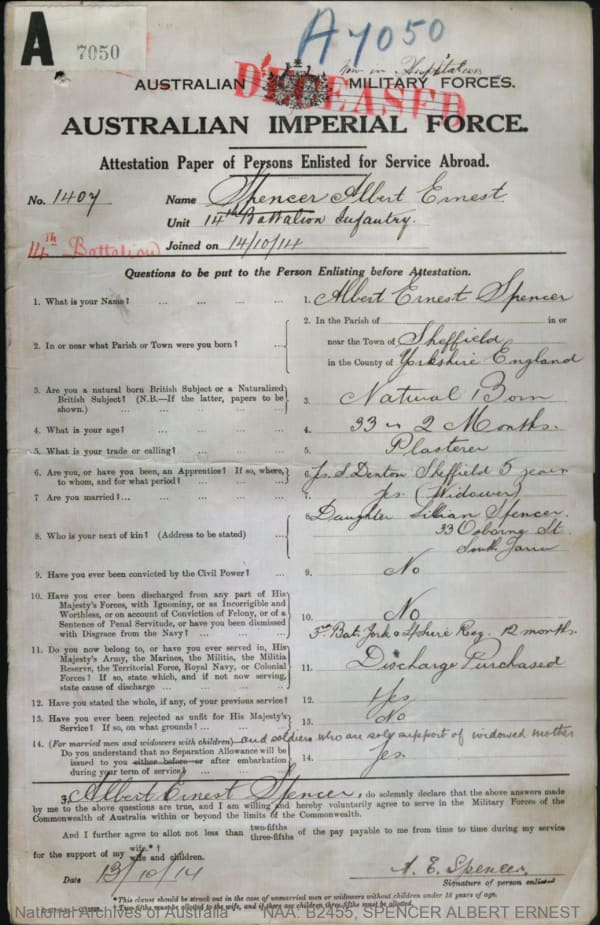 A 7050
A7050
now in Hospital
AUSTRALIAN MILITARY FORCES.
DECEASED
AUSTRALIAN IMPERIAL FORCE.
Attestation Paper of Persons Enlisted for Service Abroad.
No. 1407 Name Spencer Albert Ernest
Unit 14th Battalion Infantry.
14th Battalion Joined on 14/10/14
Questions to be put to the Person Enlisting before Attestation.
1. What is your Name? ... ... ... ... 1. Albert Ernest Spencer
2. In or near what Parish or Town were you born? ... 2. In the Parish of in or
near the Town of Sheffield
in the County of Yorkshire England
3. Are you a natural born British Subject or a Naturalized
British Subject? (N.B.—If the latter, papers to be
shown.) ... ... ... ... 3. Natural Born
4. What is your age? ... ... ... ... 4. 33 2 Months.
5. What is your trade or calling? ... ... ... 5. Plasterer
6. Are you, or have you been, an Apprentice? If so, where,
to whom, and for what period? ... ... ... 6. S. Denton Sheffield 5 years
7. Are you married? ... ... ... ... 7. Yes (Widower)
8. Who is your next of kin? (Address to be stated) ... 8. Daughter Lilian Spencer.
33 Osborne St.
South Yarra
9. Have you ever been convicted by the Civil Power? ... 9. No
10. Have you ever been discharged from any part of His
Majesty's Forces, with Ignominy, or as Incorrigible and
Worthless, or on account of Conviction of Felony, or of a
Sentence of Penal Servitude, or have you been dismissed
with Disgrace from the Navy? ... ... ... 10. No
11. Do you now belong to, or have you ever served in, His
Majesty's Army, the Marines, the Militia, the Militia
Reserve, the Territorial Force, Royal Navy, or Colonial
Forces? If so, state which, and if not now serving,
state cause of discharge ... ... ... 11. 3rd Bat. York & Reg. 12 months.
Discharge Purchased
12. Have you stated the whole, if any, of your previous service? 12. Yes
13. Have you ever been rejected as unfit for His Majesty's
Service? If so, on what grounds? ... ... 13. No
14. (For married men and widowers with children) and soldiers who are sole support of widowed mother
Do you understand that no Separation Allowance will be
issued to you either before or after embarkation
during your term of service? 14. Yes.
I, Albert Ernest Spencer, do solemnly declare that the above answers made
by me to the above questions are true, and I am willing and hereby voluntarily agree to serve in the Military Forces of the
Commonwealth of Australia within or beyond the limits of the Commonwealth.
And I further agree to allot not less than two-fifths three-fifths of the pay payable to me from time to time during my service
for the support of my wife.*† wife and children.
Date 13/10/14 A. E. Spencer.
Signature of person enlisted
*This clause should be struck out in the case of unmarried men or widowers without children under 18 years of age.
†Two-fifths must be allotted to the wife, and if there are children three-fifths must be allotted.
National Archives of Australia NAA: B2455, SPENCER ALBERT ERNEST